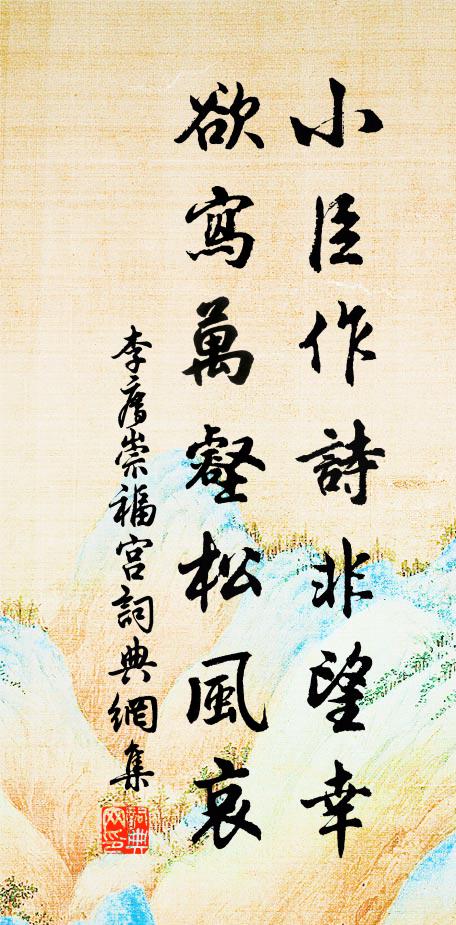 小臣作詩非望幸
欲寫萬壑松風哀
李廌崇福宮詞典網集